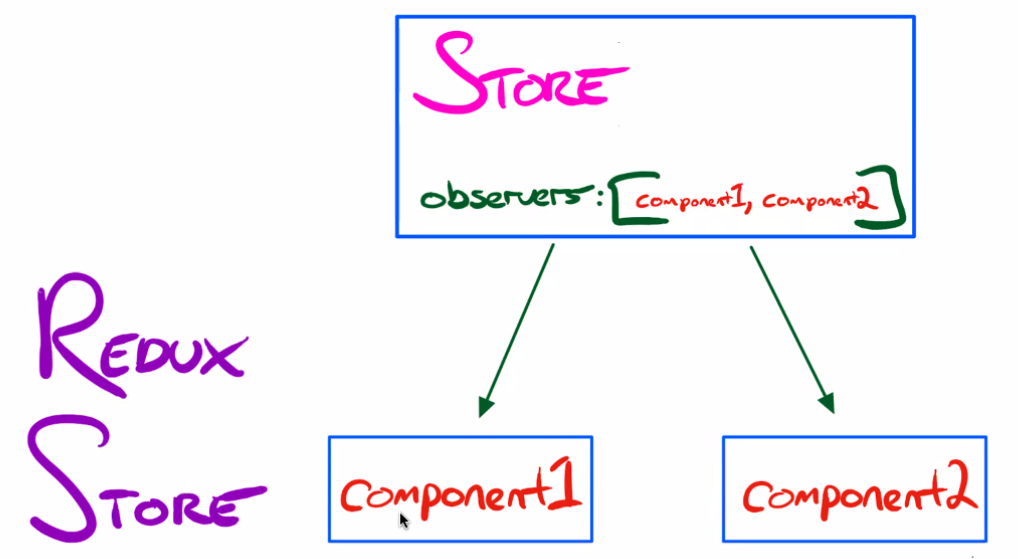 STORE
observers: [component1, component2]
REDUX
STORE
component1
component2